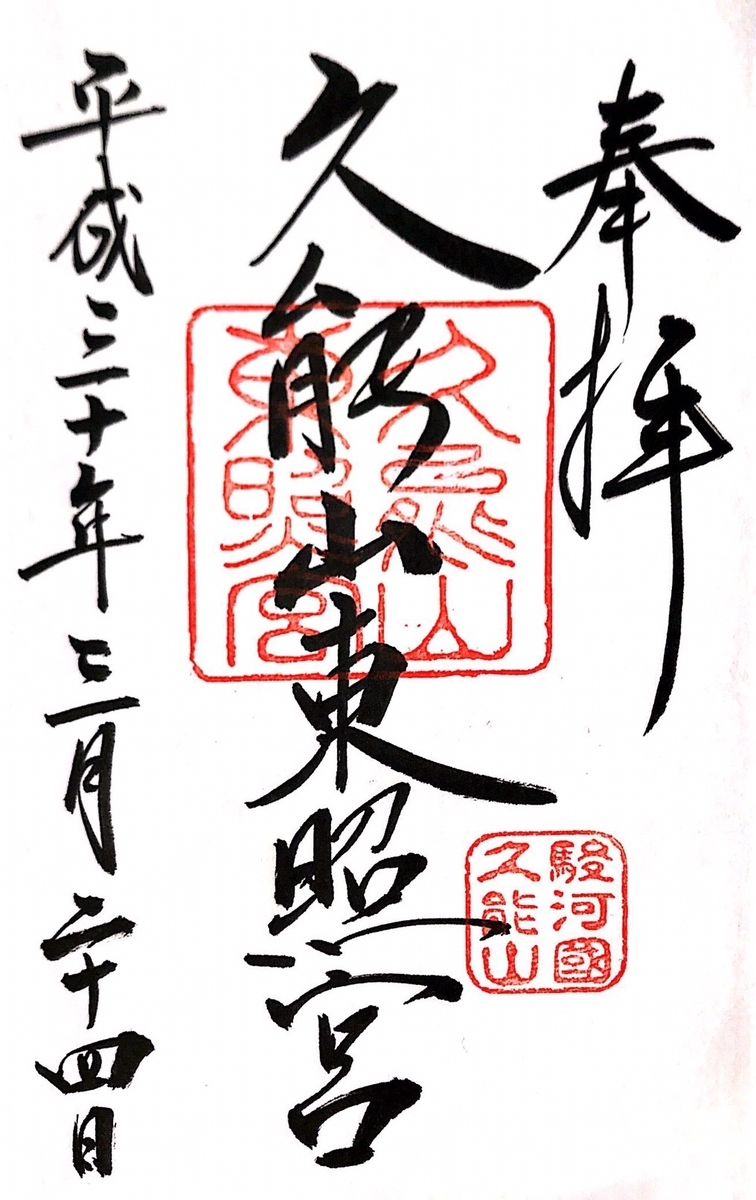 奉拝
久能山東照宮
久能山
東照宮
駿河國
久能山
平成三十年三月二十四日